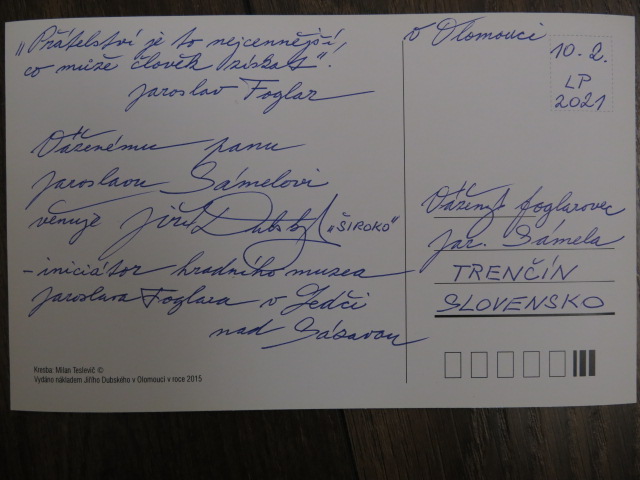 „Přátelství je to nejcennější,
co může člověk získat“.
Jaroslav Foglar
Váženému panu
Jaroslavu Sámelovi
věnuje Jiří Dubský „ŠIROKO“
– iniciátor hradního muzea
Jaroslava Foglara v Ledči
nad Sázavou
Kresba: Milan Teslevič ©
Vydáno nákladem Jiřího Dubského v Olomouci v roce 2015
v Olomouci
10. 2.
LP
2021
Vážený foglarovec
Jar. Sámela
TRENČÍN
SLOVENSKO